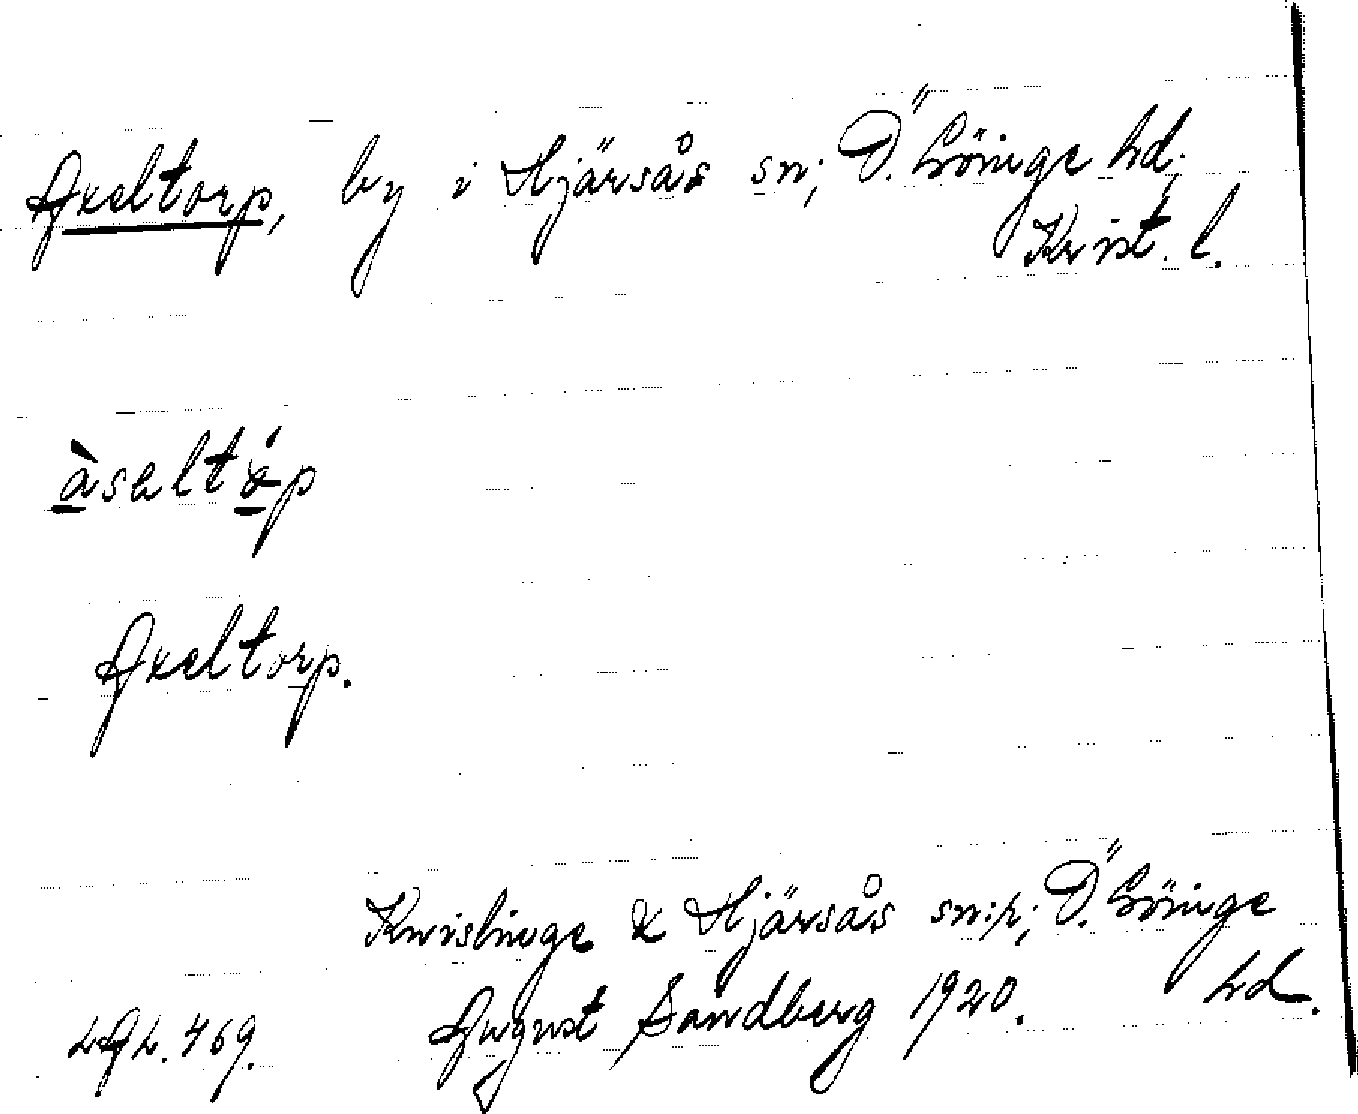 Axeltorp, by i Hjärsås sn; Ö. Göinge hd;
Krist. l.
àsaltǿp
Axeltorp.
Kvislinge & Hjärsås sn:r; Ö. Göinge
hd.
LAL. 469. August Sandberg 1920.